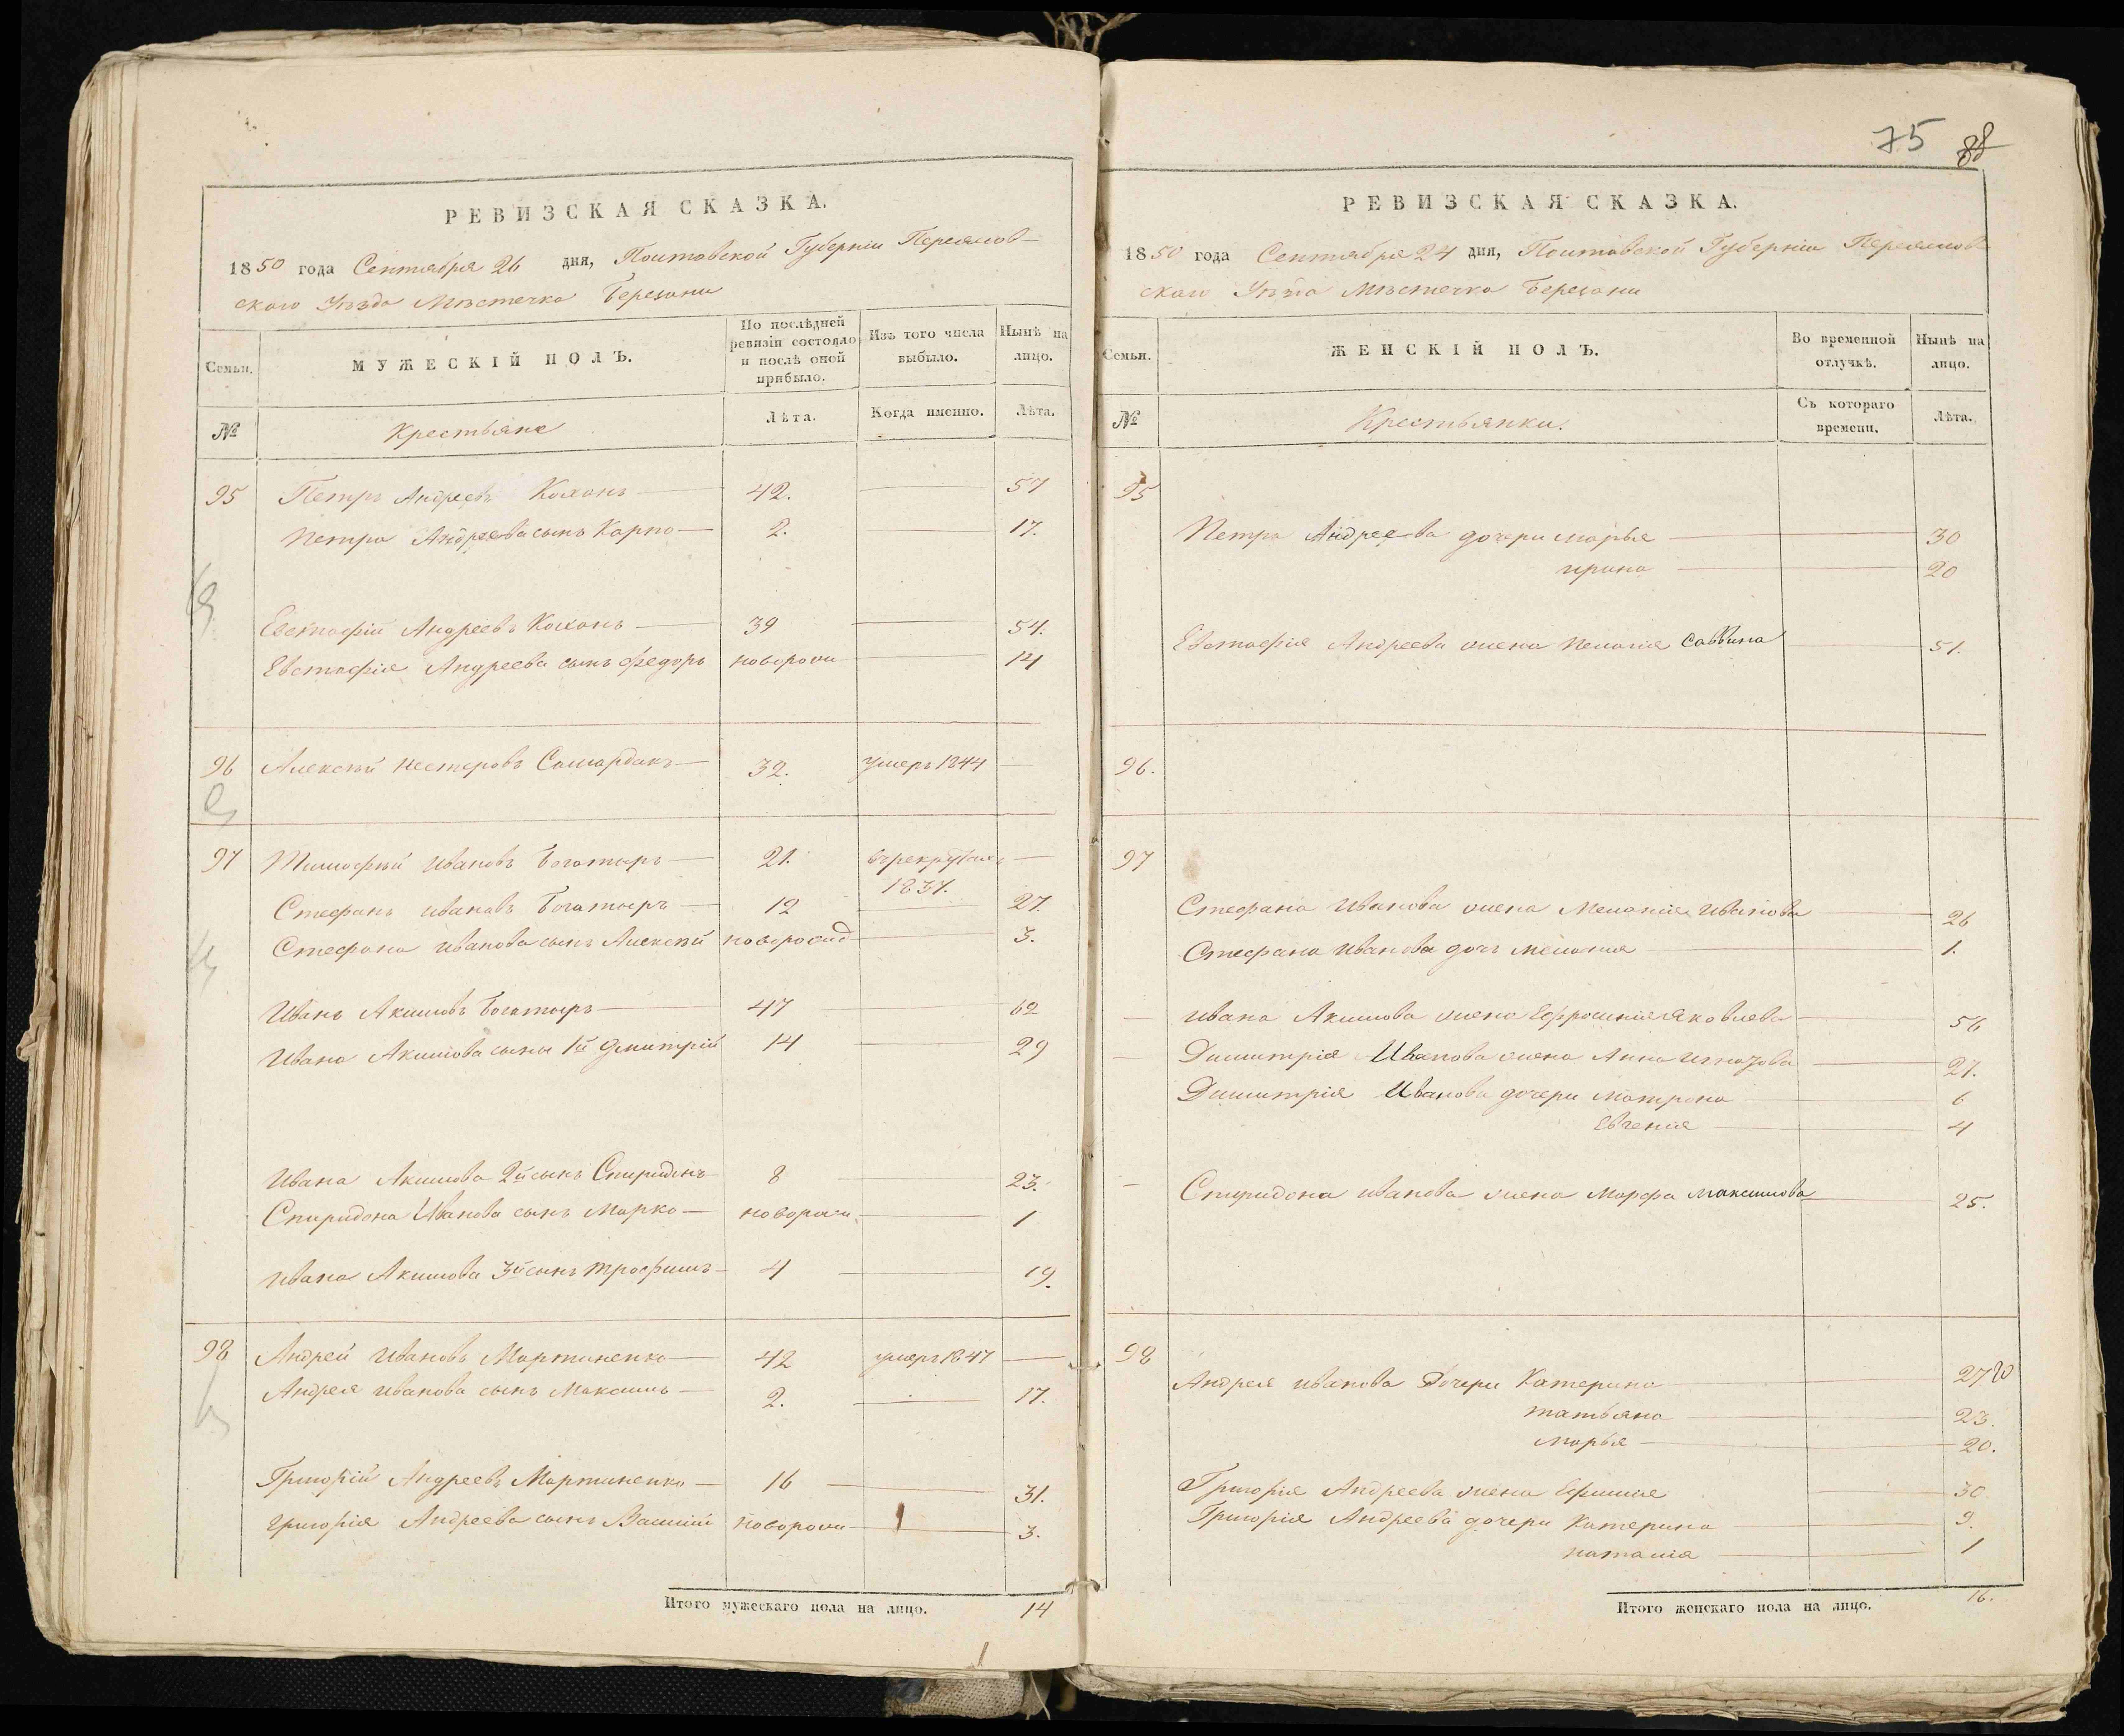 РЕВИЗСКАЯ СКАЗКА.
1850 года Сентября 26 дня, Полтавской Губерніи Переяслов-
скаго Уѣзда Мѣстечка Березани
Семьи.
МУЖЕСКІЙ ПОЛЪ.
По послѣдней ревизіи состояло и послѣ оной прибыло.
Изъ того числа выбыло.
Нынѣ на лицо.
№
Крестьяне
Лѣта.
Когда именно.
Лѣта.
95 Петръ Андреевъ Коханъ 42. 57
Петра Андреева сынъ Карпо 2. 17.
Евстафій Андреевъ Коханъ 39 54.
Евстафія Андреева сынъ Федоръ новорож 14
96 Алексѣй Нестеровъ Самардакъ 32. умеръ 1844
97 Тимофѣй Ивановъ Богатырь 21. въ рекрутахъ
1837.
Стефанъ Ивановъ Богатырь 12 27.
Стефана Иванова сынъ Алексѣй новорожд 3.
Иванъ Акимовъ Богатырь 47 62
Ивана Акимова сыны 1й Дмитрій 14 29
Ивана Акимова 2й сынъ Спиридонъ 8 23.
Спиридона Иванова сынъ Марко новорож. 1
Ивана Акимова 3й сынъ Трофимъ 4 19.
98 Андрей Ивановъ Мартиненко 42 умеръ 1847
Андрея Иванова сынъ Максимъ 2. 17.
Григорій Андреевъ Мартиненко 16 31.
Григорія Андреева сынъ Василій новорож 3.
Итого мужескаго пола на лицо. 14
75 88
РЕВИЗСКАЯ СКАЗКА.
1850 года Сентября 24 дня, Полтавской Губерніи Переяслов-
скаго Уѣзда Мѣстечка Березани
Семьи.
ЖЕНСКІЙ ПОЛЪ.
Во временной отлучкѣ.
Нынѣ на лицо.
№
Крестьянки.
Съ котораго времени.
Лѣта.
95
Петра Андреева дочери Марья 30
Ирина 20
Евстафія Андреева жена Пелагія Саввина 51.
96.
97
Стефана Иванова жена Меланія Иванова 26
Стефана Иванова дочь Меланія 1.
Ивана Акимова жена Ефросинія Яковлева 56
Димитрія Иванова жена Анна Игнатова 27.
Димитрія Иванова дочери Матрона 6
Евгенія 4
Спиридона Иванова жена Марфа Максимова 25.
98
Андрея Иванова дочери Катерина 27
Татьяна 23.
Марья 20.
Григорія Андреева жена Ефимия 30
Григорія Андреева дочери Катерина 9.
Наталія 1
Итого женскаго пола на лицо. 16.